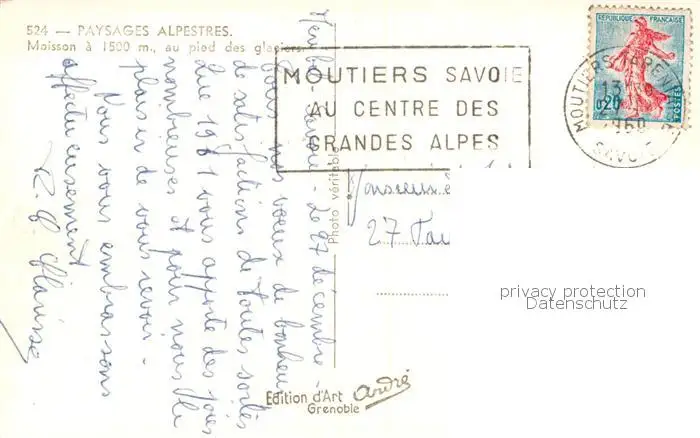 524 — PAYSAGES ALPESTRES.
Moisson à 1500 m., au pied des glaciers.
MOUTIERS SAVOIE
AU CENTRE DES
GRANDES ALPES
REPUBLIQUE FRANÇAISE
0,20
POSTES
MOUTIERS TARENTAISE
13
1960
SAVOIE
Savoie - Le 27 décembre -
nos vœux de bonheur
de satisfactions de toutes sortes
Que 1961 vous apporte des joies
nombreuses et pour nous le
plaisir de vous revoir -
Nous vous embrassons
affectueusement
Photo véritable
Monsieur
27
privacy protection
Datenschutz
Edition d'Art André
Grenoble